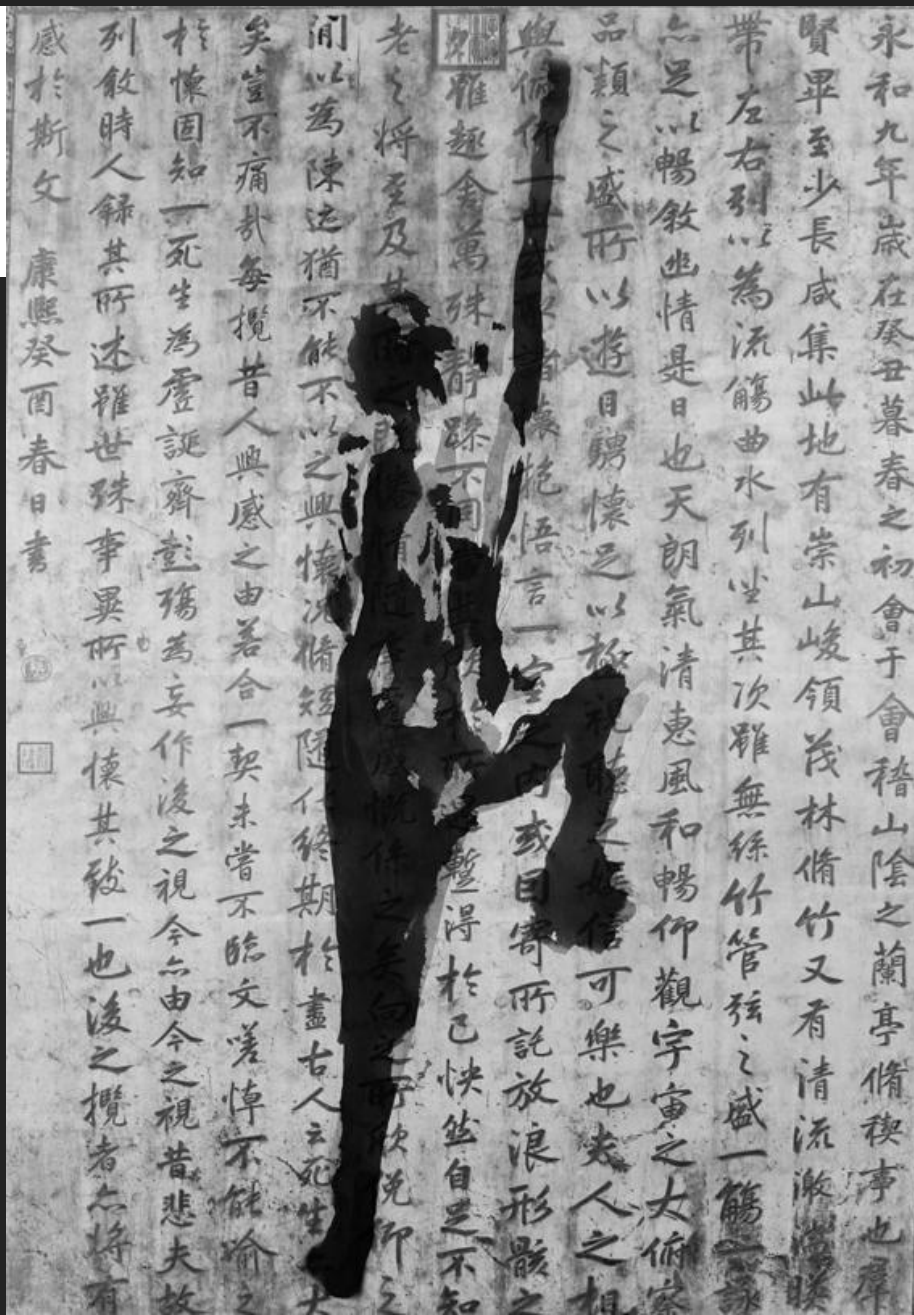 永和九年歲在癸丑暮春之初會于會稽山陰之蘭亭脩稧事也羣
賢畢至少長咸集此地有崇山峻領茂林脩竹又有清流激湍暎
帶左右引以為流觴曲水列坐其次雖無絲竹管弦之盛一觴一詠
亦足以暢敘幽情是日也天朗氣清惠風和暢仰觀宇宙之大俯察
品類之盛所以遊目騁懷足以極視聽之娛信可樂也夫人之相
與俯仰一世或取諸懷抱悟言一室之內或因寄所託放浪形骸之
雖趣舍萬殊靜躁不同當其欣於所遇暫得於己怏然自足不知
老之將至及其所之既惓情隨事遷感慨係之矣向之所欣俛仰之
間以為陳迹猶不能不以之興懷況脩短隨化終期於盡古人云死生亦大
矣豈不痛哉每攬昔人興感之由若合一契未嘗不臨文嗟悼不能喻之
於懷固知一死生為虛誕齊彭殤為妄作後之視今亦由今之視昔悲夫故
列敘時人錄其所述雖世殊事異所以興懷其致一也後之攬者亦將有
感於斯文 康熙癸酉春日書